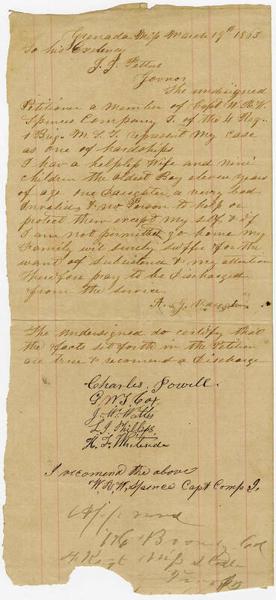 Grenada Miss March 19th 1863
To his Exelency
J. J. Pettus
Govnor
The undersigned
Petitioner a Member of Capt W. B. W.
Spences Company I. of the 4 Reg.
1 Brig. M. S. T. represent My Case
as one of hardships
I have a helpless Wife and nine
Children the oldest Boy eleven years
of age one Daughter a very bad
invalide & no Person to help or
protect them except my self & if
I am not permitted to go home my
Family will surely suffer for the
want of subsistance & my attention
Therefore pray to be discharged
from the service
The Undersigned do certify that
the facts set forth in the Petition
are true & recomend a discharge
Charles Powell
G. W. T. Cox
J. M. Watts
L. J. Phillips
H. F.
I recomend the above
W. B. W. Spence Capt Comp I.
Approved
Col
4 Regt Miss S